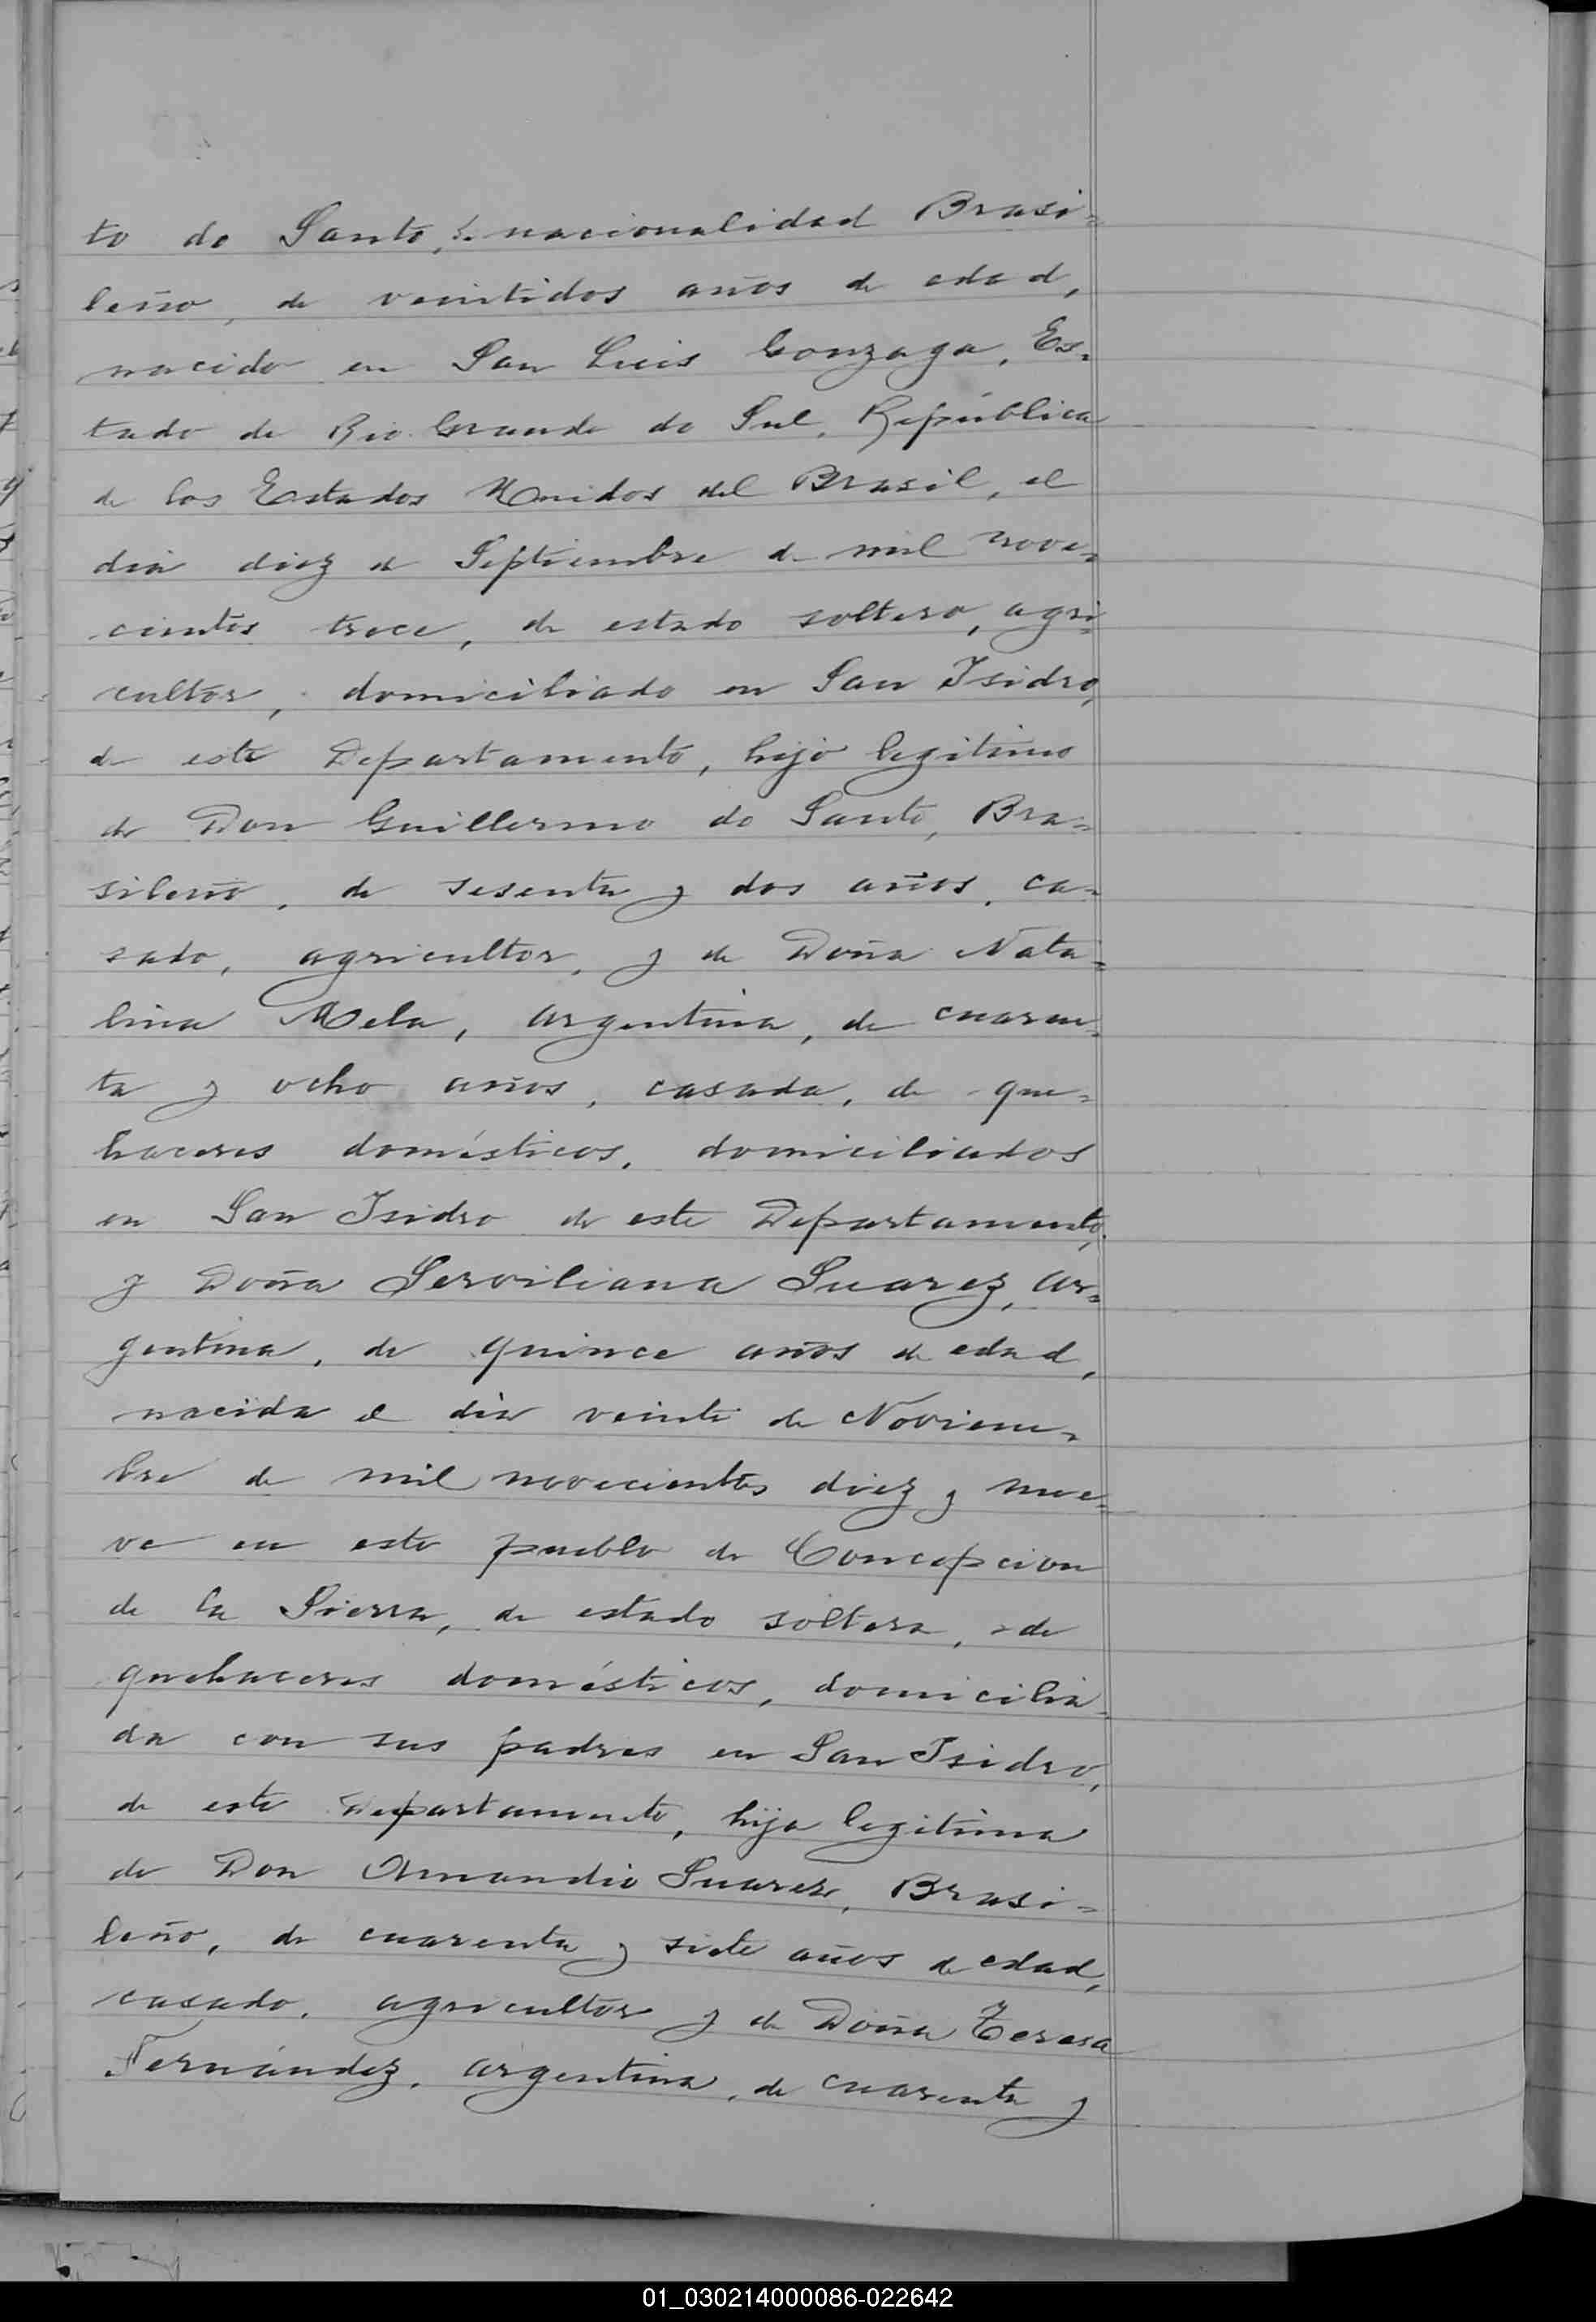 to do Santo, de nacionalidad Brasi=
leño, de veintidos años de edad,
nacido en San Luis Gonzaga, Es=
tado de Rio Grande do Sul, República
de los Estados Unidos del Brasil, el
dia diez de Septiembre de mil nove=
cientos trece, de estado soltero, agri=
cultor, domiciliado en San Isidro,
de este Departamento, hijo legitimo
de Don Guillermo do Santo, Bra=
sileño, de sesenta y dos años, ca=
sado, agricultor, y de Doña Nata=
lina Mela, argentina, de cuaren=
ta y ocho años, casada, de que=
haceres domésticos, domiciliados
en San Isidro de este Departamento,
y Doña Serviliana Suarez, ar=
gentina, de quince años de edad,
nacida el dia veinte de Noviem=
bre de mil novecientos diez y nue=
ve en este pueblo de Concepcion
de la Sierra, de estado soltera, de
quehaceres domésticos, domicilia=
da con sus padres en San Isidro,
de este Departamento, hija legitima
de Don Amandio Suarez, Brasi=
leño, de cuarenta y siete años de edad,
casado, agricultor y de Doña Teresa
Fernández, argentina, de cuarenta y
01_030214000086-022642